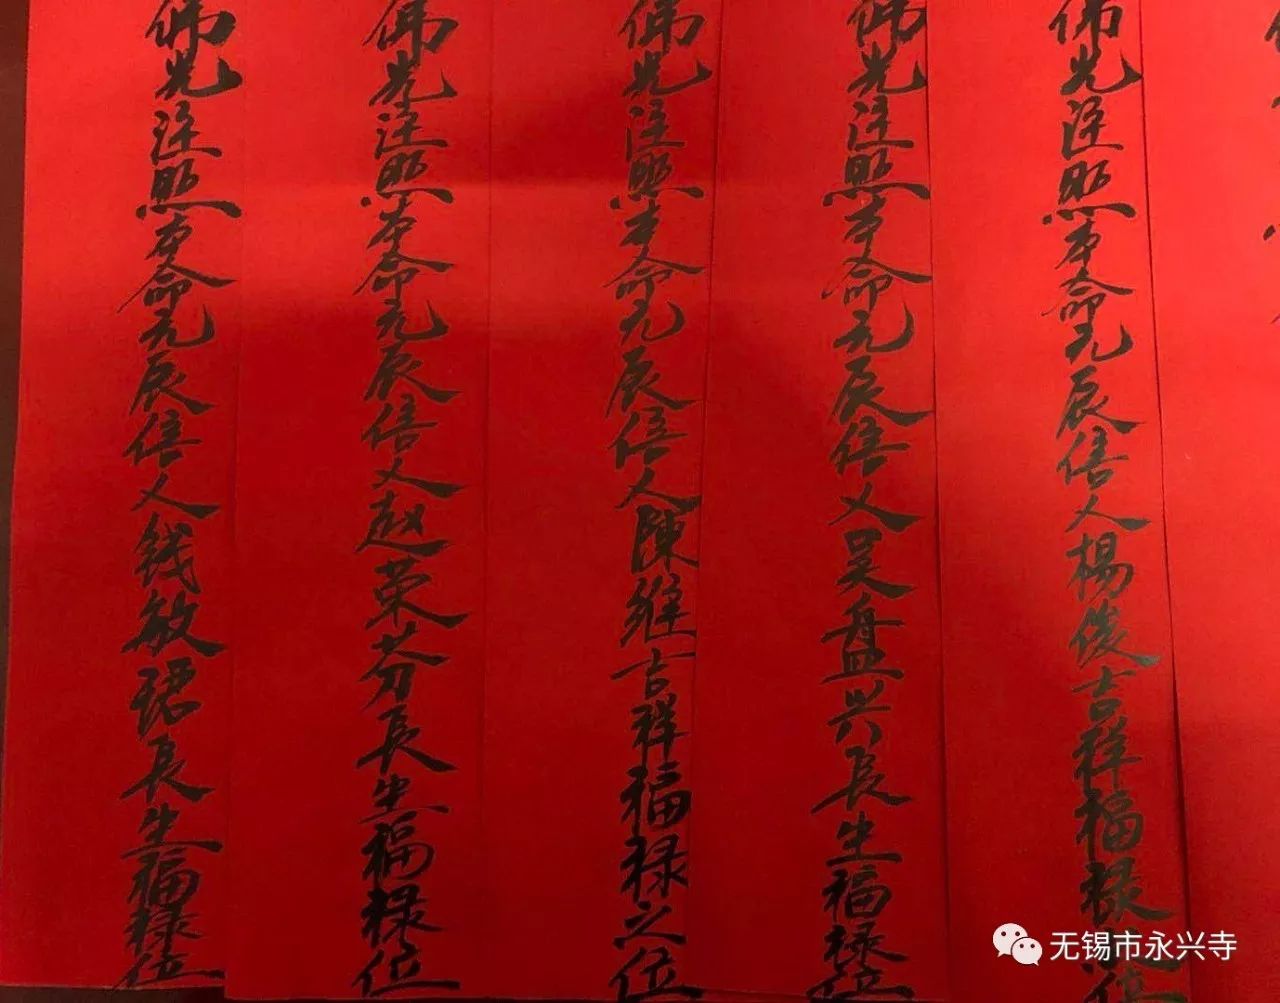 佛光注照本命元辰信人楊俊吉祥福禄之位
佛光注照本命元辰信人吴盘兴長生福禄位
佛光注照本命元辰信人陳維吉祥福禄之位
佛光注照本命元辰信人赵荣芬長生福禄位
佛光注照本命元辰信人钱敏珺長生福禄位
无锡市永兴寺